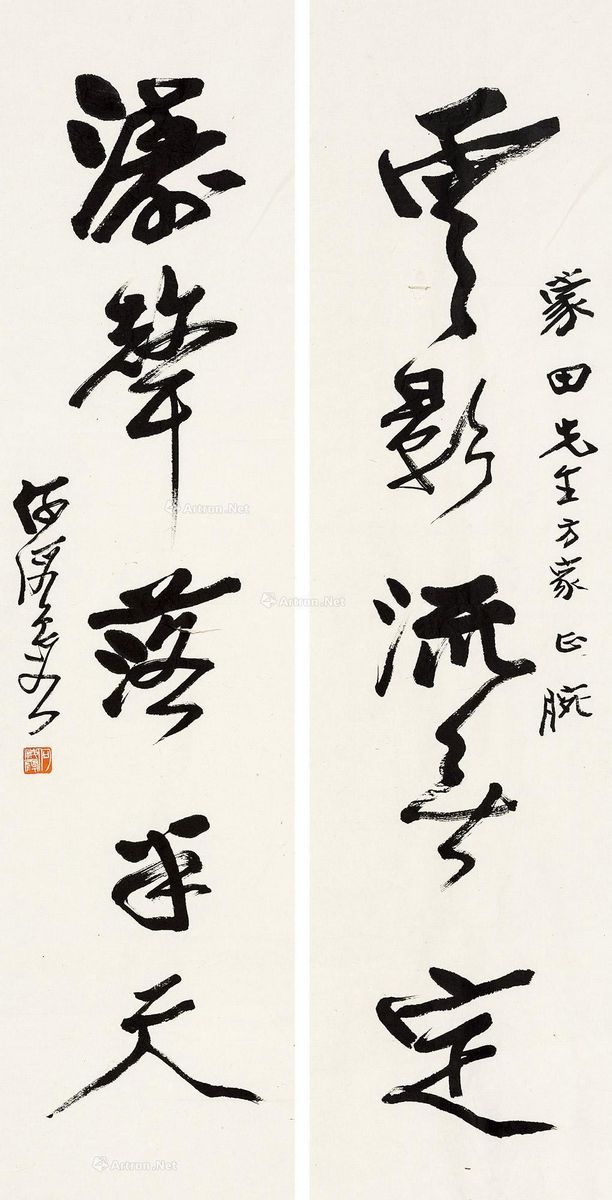 蒙田先生方家正腕
雲影流無定
瀑聲落半天
Artron.Net
Artron.Net
Artron.Net